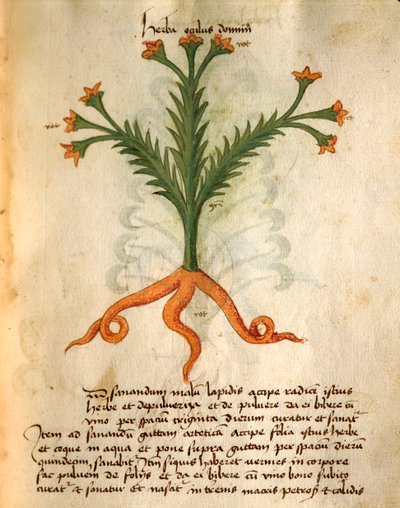 herba oculus domini
rot
rot
rot
grͥ
rot
Ad sanandum malū lapidis accipe radicē istius
herbe et depulveriza et de pulvere da ei bibere cū
vino per spaciū triginta dierum curatur et sanatͬ
Item ad sanandū guttam arteticā accipe folia istius herbe
et coque in aqua et pone supra guttam per spaciū dierū
quindecim, sanabitͬ Itȝ siquis haberet vermes in corpore
fac pulverem de folijs et da ei bibere cū vino bono subito
curatͬ et sanatur et nascitͬ in terreis macris petrosis et calidis